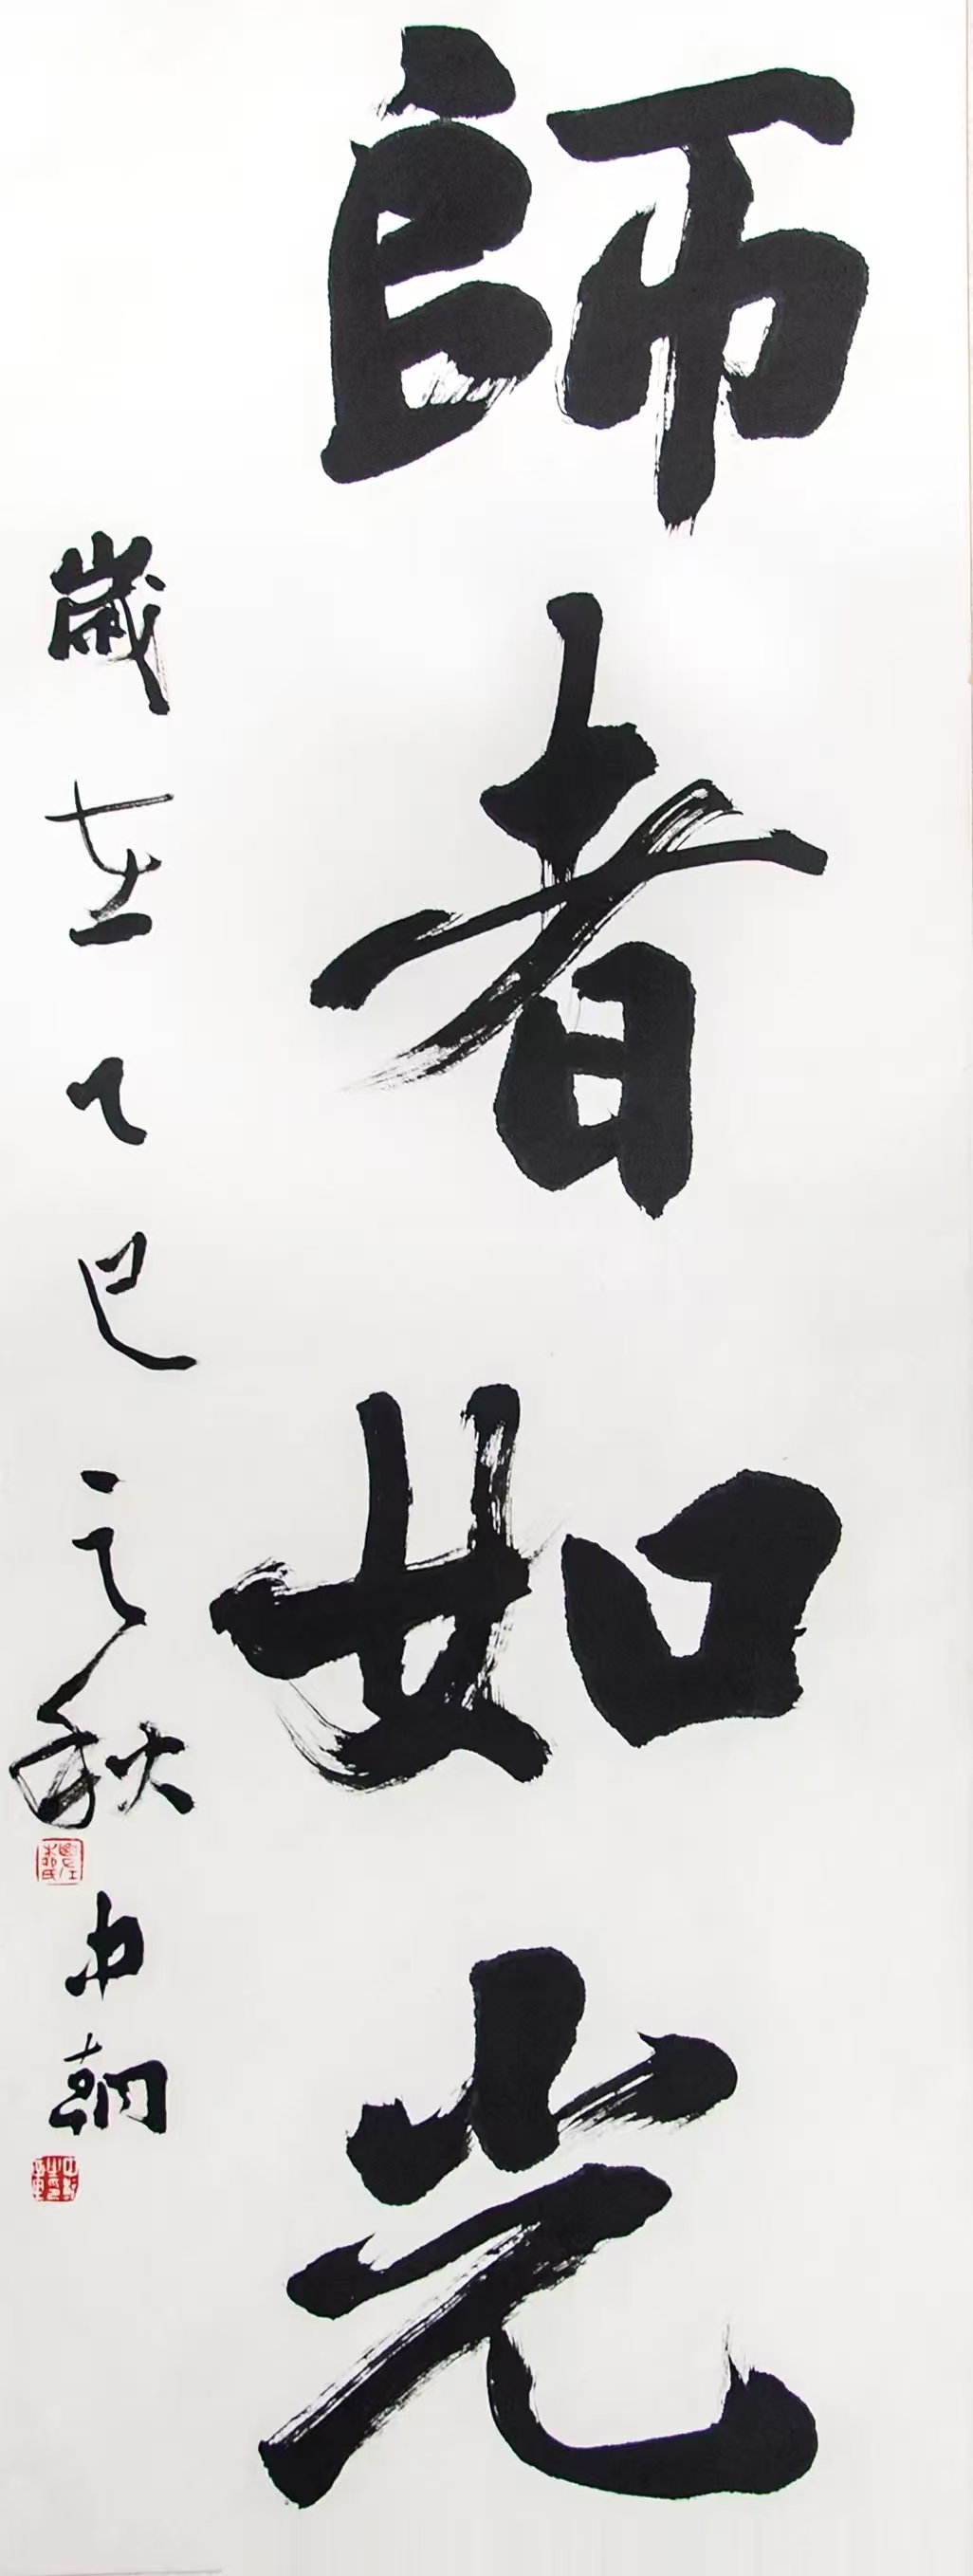 師者如光
歲在乙巳之秋中朝